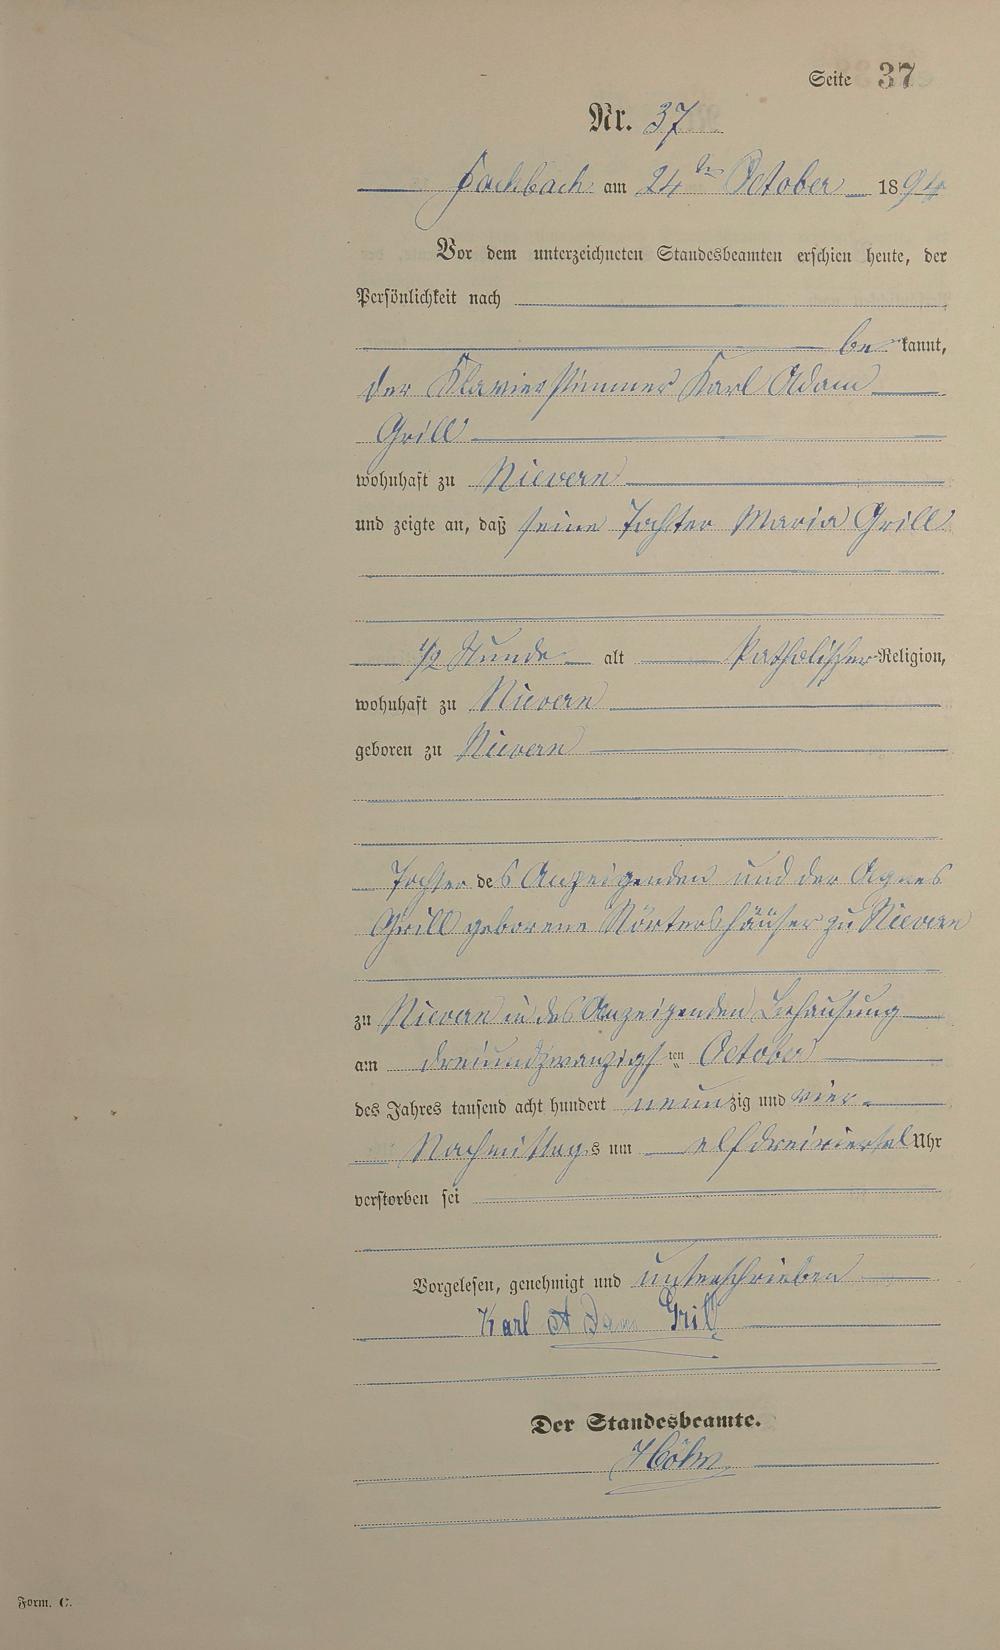 Seite 37
Nr. 37
Fachbach am 24ten October 1894
Vor dem unterzeichneten Standesbeamten erschien heute, der
Persönlichkeit nach
bekannt,
der Klavierstimmer Karl Adam
Grill
wohnhaft zu Nievern
und zeigte an, daß seine Tochter Maria Grill
1/2 Stunde alt katholischer Religion,
wohnhaft zu Nievern
geboren zu Nievern
Tochter des Anzeigenden und der Agnes
Grill geborene Nörtershäuser zu Nievern
zu Nievern in des Anzeigenden Behausung
am dreiundzwanzigsten October
des Jahres tausend acht hundert neunzig und vier
Nachmittags um elf dreiviertel Uhr
verstorben sei
Vorgelesen, genehmigt und unterschrieben
Karl Adam Grill
Der Standesbeamte.
Form. C.